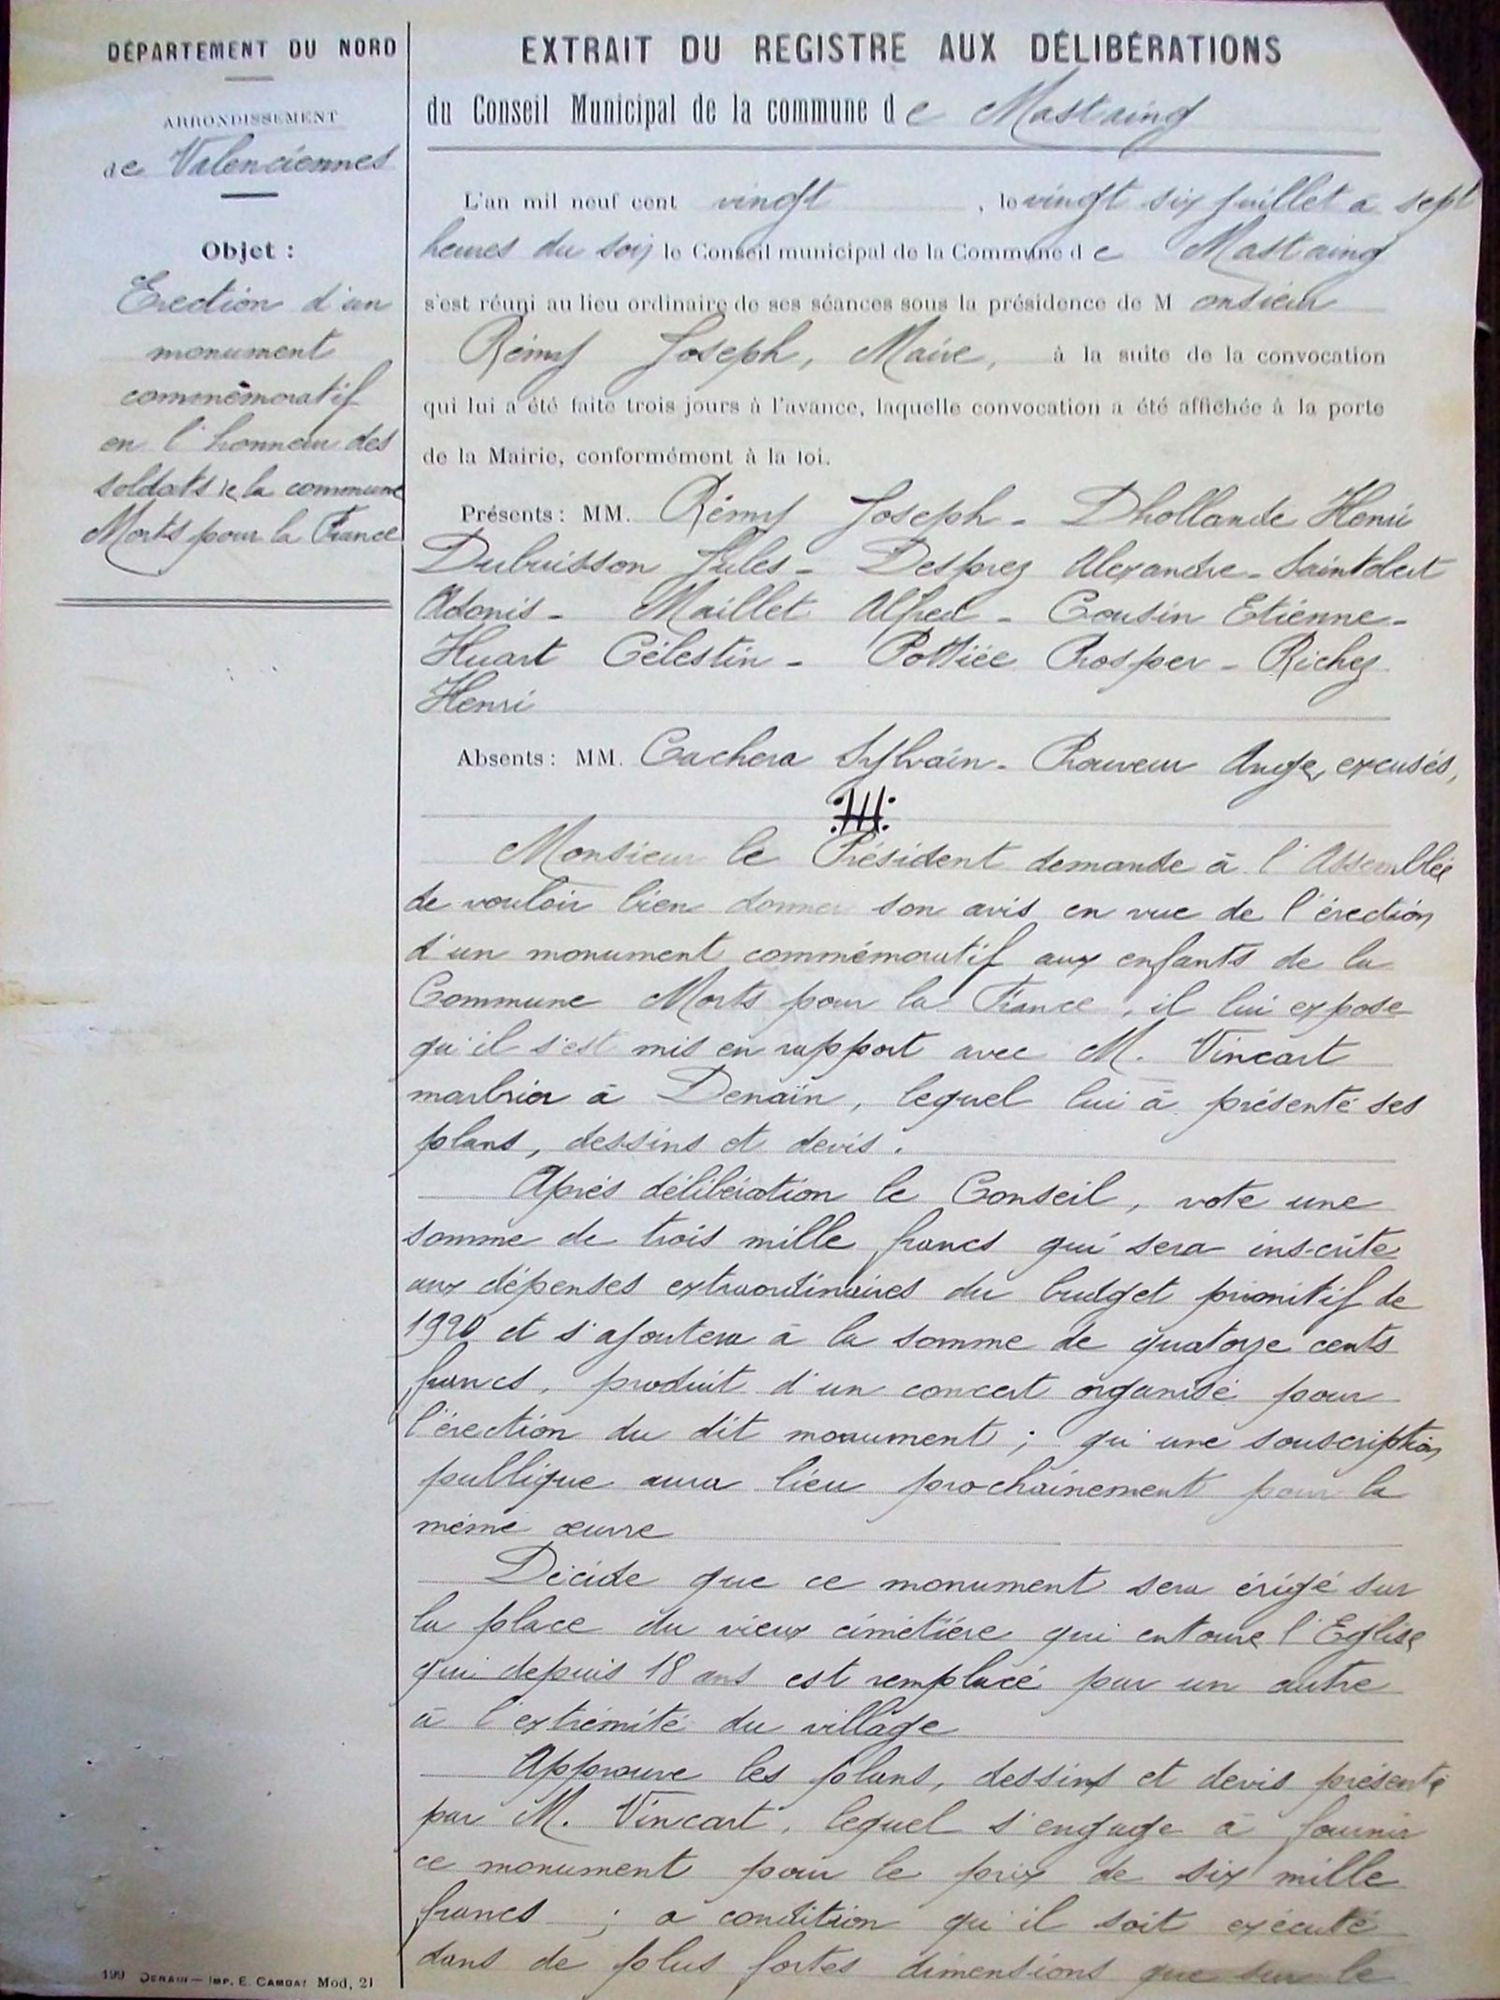 DÉPARTEMENT DU NORD
ARRONDISSEMENT
de Valenciennes
Objet :
Erection d'un
monument
commémoratif
en l'honneur des
soldats de la commune
Morts pour la France
EXTRAIT DU REGISTRE AUX DÉLIBÉRATIONS
du Conseil Municipal de la commune de Mastaing
L'an mil neuf cent vingt, le vingt six juillet à sept
heures du soir le Conseil municipal de la Commune de Mastaing
s'est réuni au lieu ordinaire de ses séances sous la présidence de Monsieur
Rémy Joseph, Maire, à la suite de la convocation
qui lui a été faite trois jours à l'avance, laquelle convocation a été affichée à la porte
de la Mairie, conformément à la loi.
Présents : MM. Rémy Joseph - Dhollande Henri
Dubuisson Jules - Desprez Alexandre - Saintobert
Adonis - Maillet Alfred - Cousin Etienne -
Huart Célestin - Pottiée Prosper - Richez
Henri
Absents : MM. Cachera Sylvain - Prouveur Ange, excusés,
Monsieur le Président demande à l'Assemblée
de vouloir bien donner son avis en vue de l'érection
d'un monument commémoratif aux enfants de la
Commune Morts pour la France, il lui expose
qu'il s'est mis en rapport avec M. Vincart
marbrier à Denain, lequel lui à présenté ses
plans, dessins et devis.
Après délibération le Conseil, vote une
somme de trois mille francs qui sera inscrite
aux dépenses extraordinaires du budget primitif de
1920 et s'ajoutera à la somme de quatorze cents
francs, produit d'un concert organisé pour
l'érection du dit monument ; qu'une souscription
publique aura lieu prochainement pour la
même œuvre
Décide que ce monument sera érigé sur
la place du vieux cimetière qui entoure l'Eglise
qui depuis 18 ans est remplacé par un autre
à l'extrémité du village
Approuve les plans, dessins et devis présenté
par M. Vincart, lequel s'engage à fournir
ce monument pour le prix de six mille
francs ; a condition qu'il soit exécuté
dans de plus fortes dimensions que sur le
199 DENAIN — IMP. E. CAMBAY Mod. 21